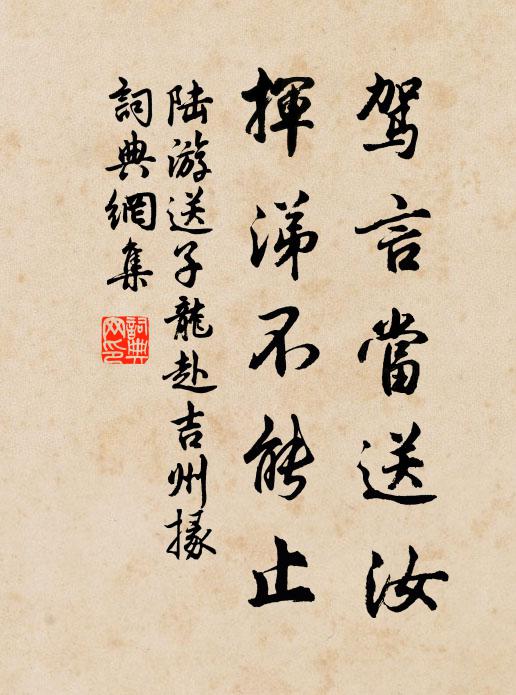 駕言當送汝
揮涕不能止
陸游送子龍赴吉州掾
詞典網集
詞典
网印